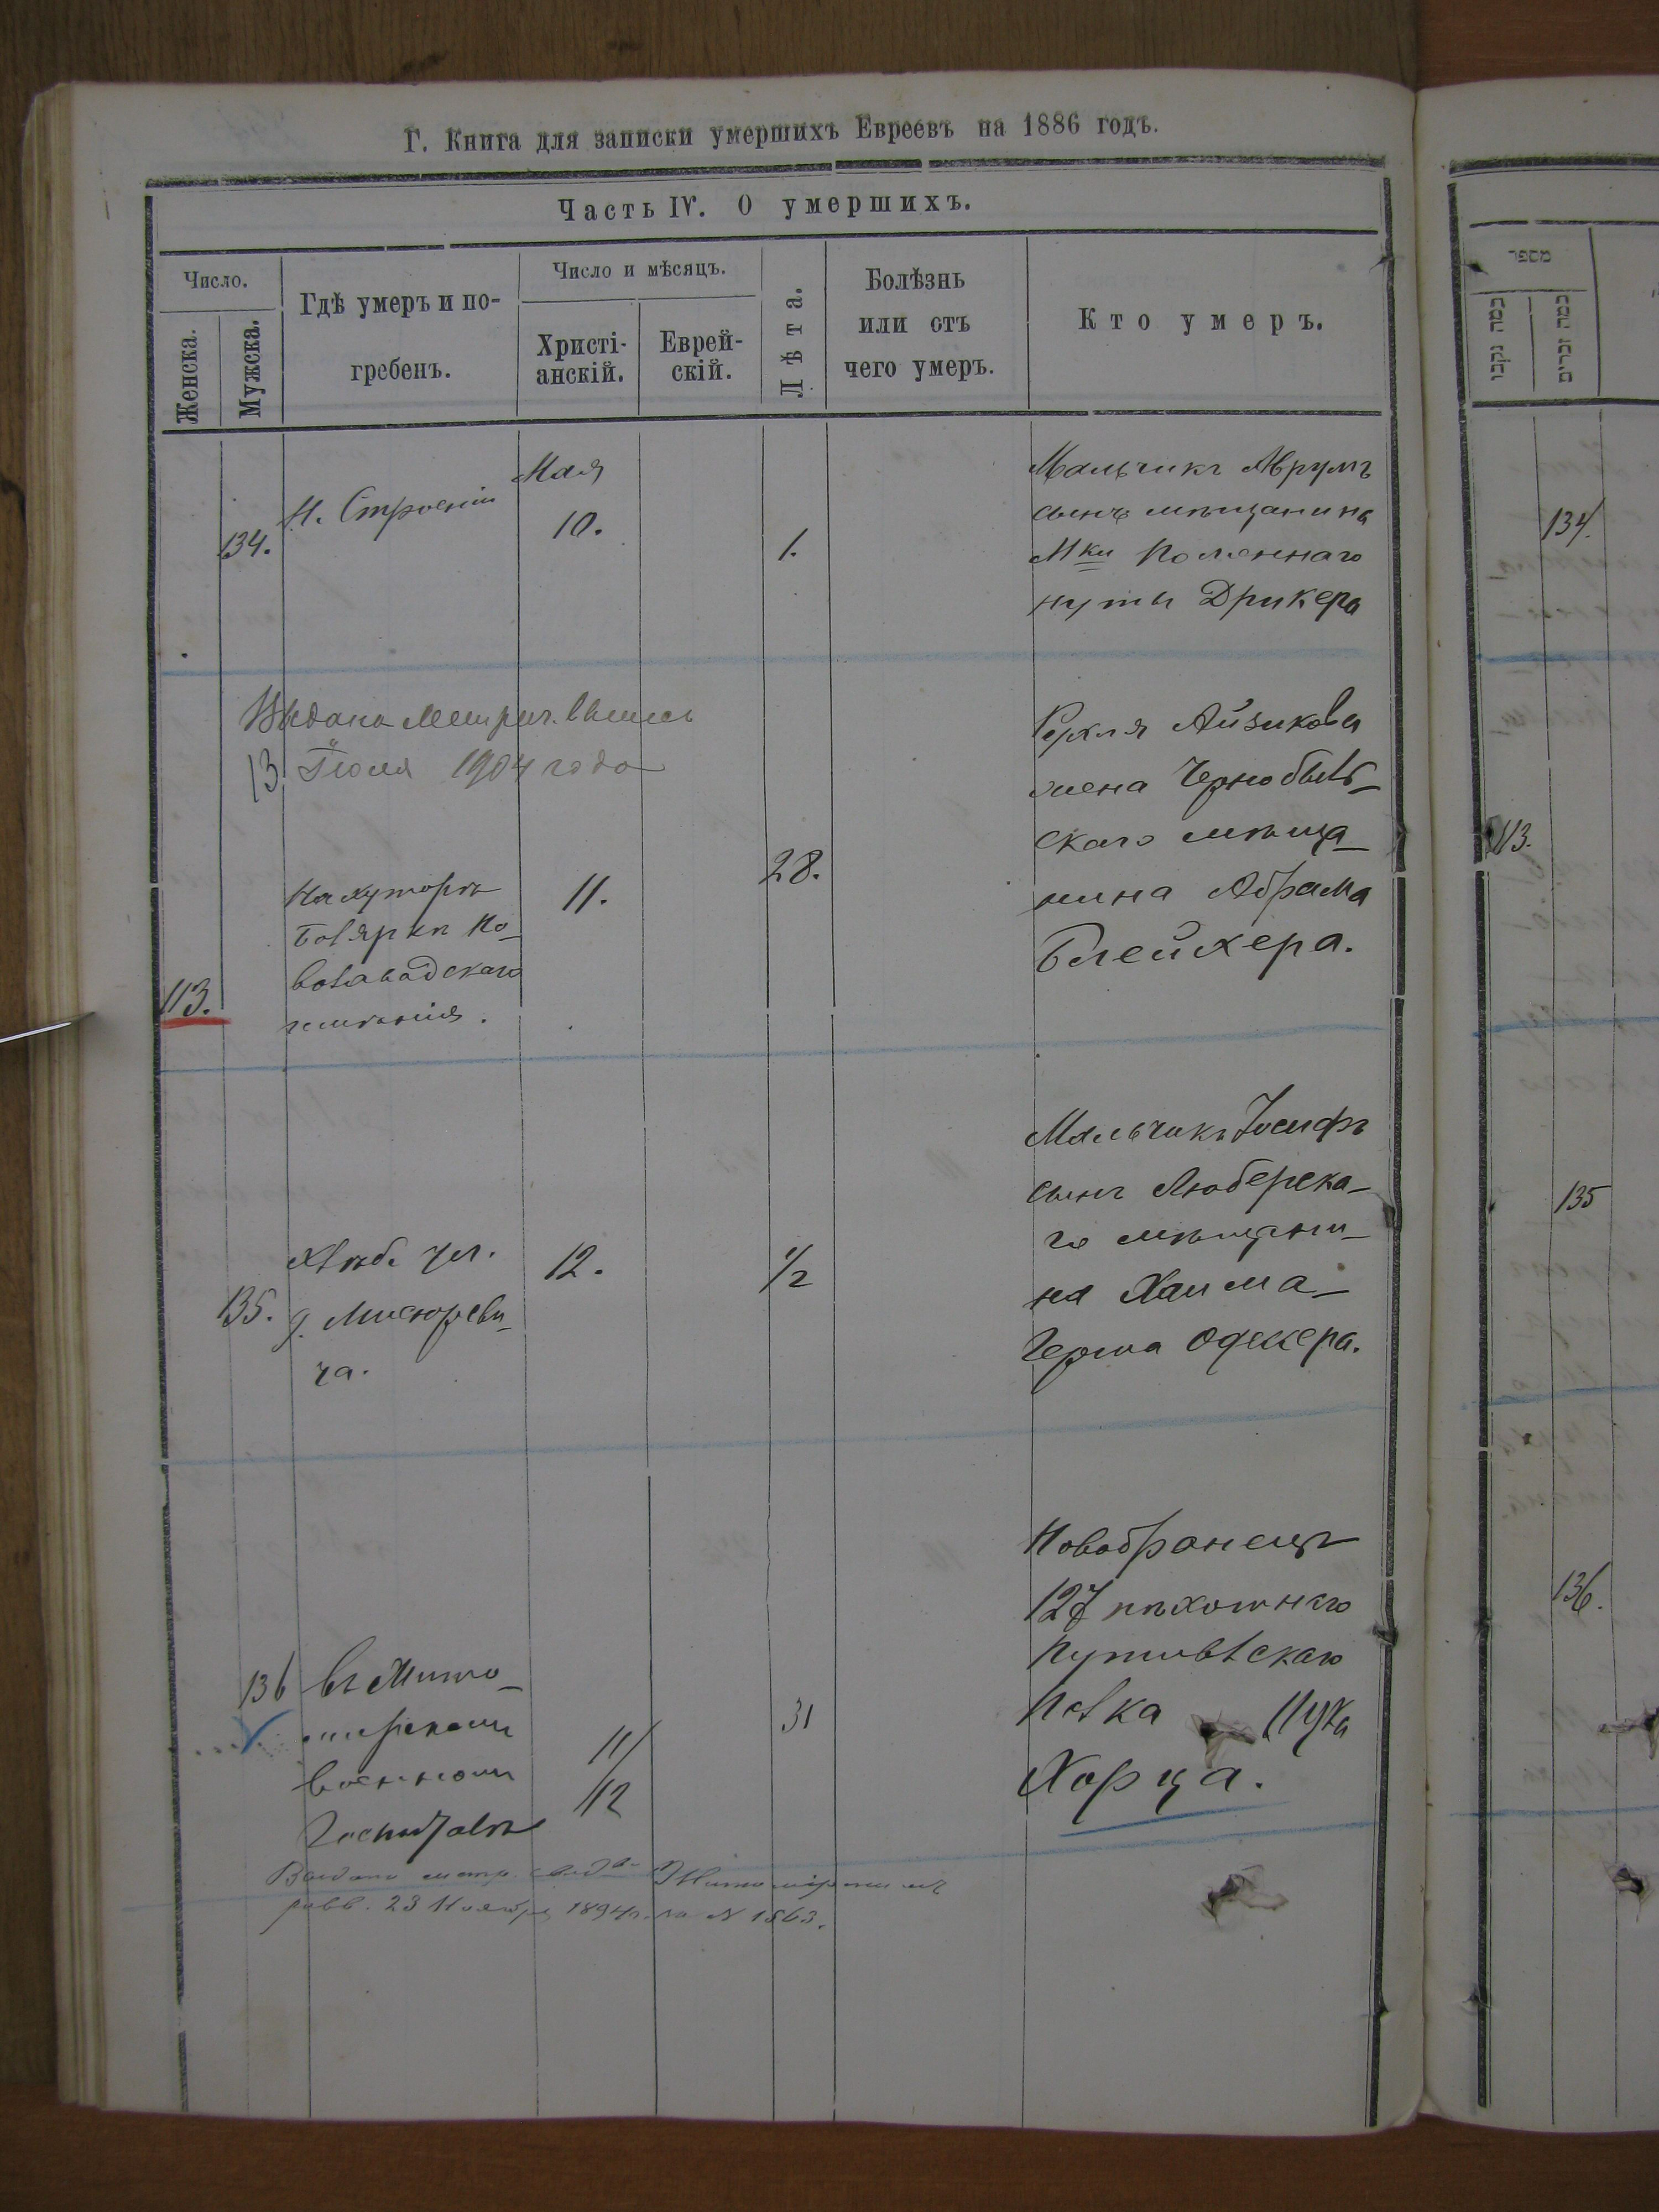 Г. Книга для записки умершихъ Евреевъ на 1886 годъ.
Часть IV. О умершихъ.
Число.
Женска.
Мужска.
Гдѣ умеръ и по-
гребенъ.
Число и мѣсяцъ.
Христі-
анскій.
Еврей-
скій.
Лѣта.
Болѣзнь
или отъ
чего умеръ.
Кто умеръ.
134.
Н. Строеніи
Мая
10.
1.
Мальчикъ Аврумъ
сынъ мѣщанина
М ки
Нуты Дрикера
Выдана Метрич. выпись
13 Іюля 1904 года
113.
На хуторѣ
Боярки Но-
возавадскаго
имѣнія.
11.
28.
Рухля Айзикова
жена Чернобыль-
скаго мѣща-
нина Абрама
Блейхера.
135.
Хлѣбн. ул.
д. Мисюреви-
ча.
12.
1/2
Мальчикъ Іосифъ
сынъ Любарска-
го мѣщани-
на Хаима-
Герша
136
въ Жито-
мирскомъ
военномъ
Госпиталѣ
11/
/12
31
Новобранецъ
127 пѣхотнаго
Путивльскаго
Полка
Хорца.
Выдано метр. свид. Житомірскимъ
равв. 23 Ноября 1894 г. за N 1563.
מספר
כמה נקבות
כמה זכרים
134.
113.
135
136.